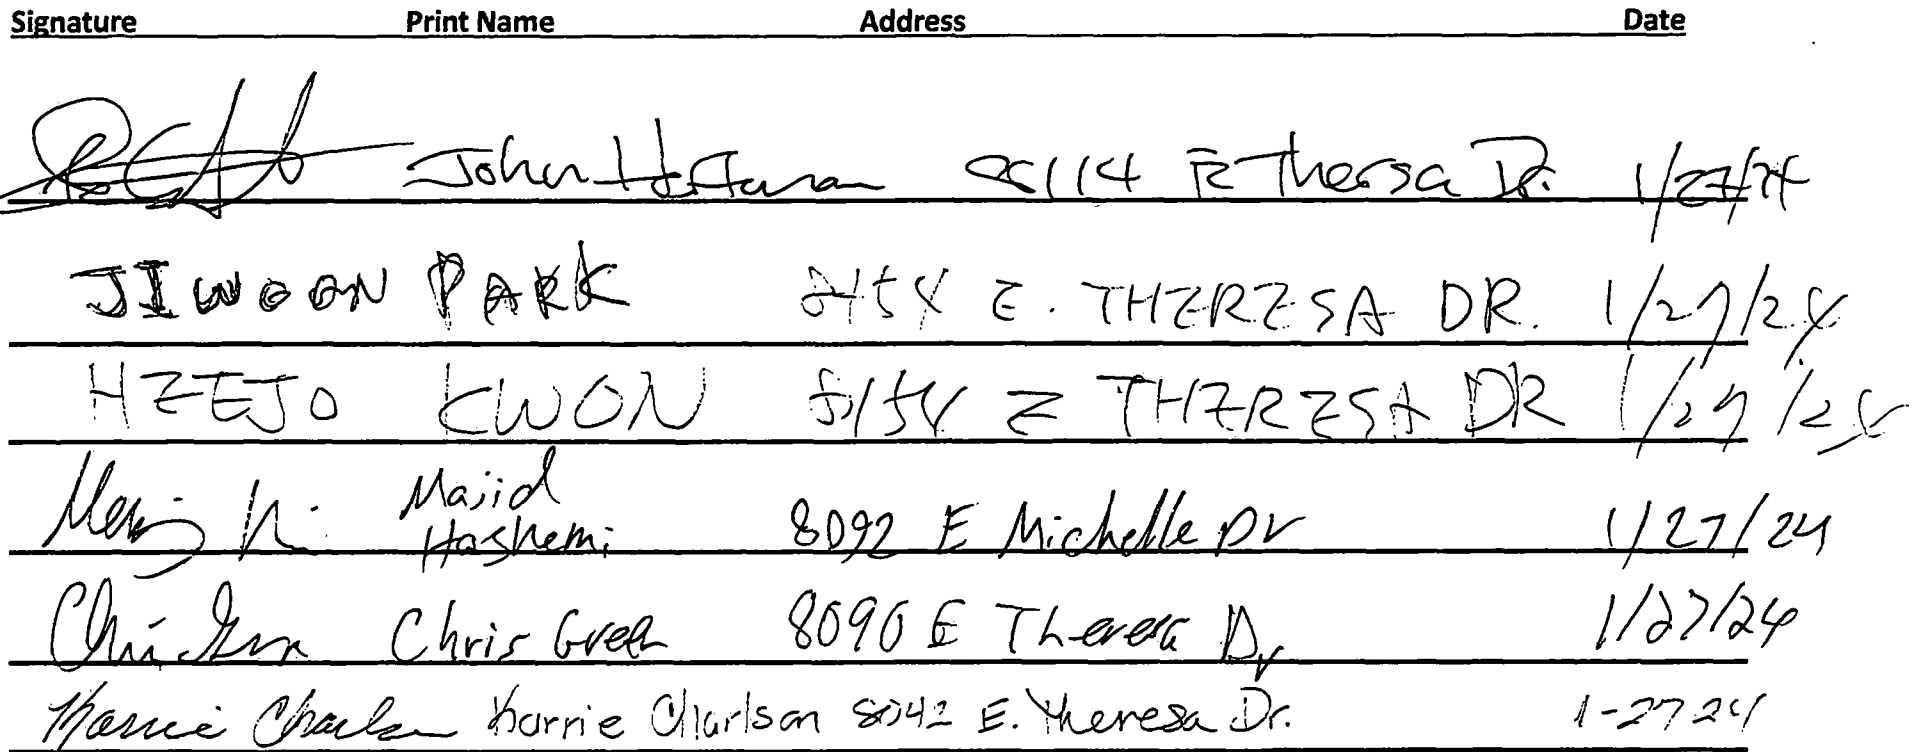 Signature Print Name Address Date
John Hoffman 8114 E Thersa Dr. 1/27/24
JIWOON PARK 8154 E. THERESA DR. 1/27/24
HEEJO KWON 8154 E THERESA DR 1/27/24
Majid Hashemi 8092 E Michelle Dr 1/27/24
Chris Green Chris Green 8090 E Theresa Dr 1/27/24
Karrie Charlson Karrie Charlson 8042 E. Theresa Dr. 1-27 24